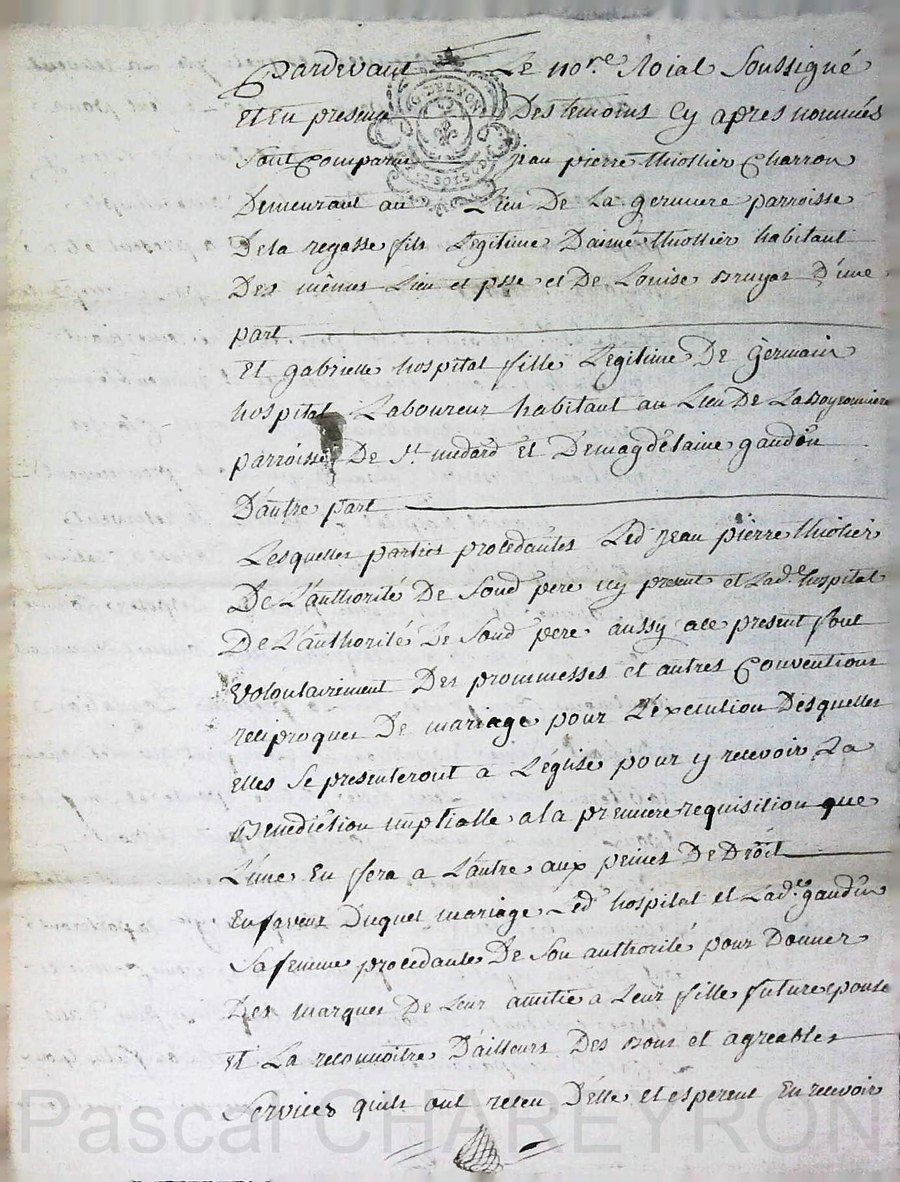 Pardevant Le no.re Roial Soussigné
G. DE LYON
Et En presence Des temoins Cy apres nommés
Sont Comparu jean pierre thiollier Charron
Demeurant au Lieu De La germiere parroisse
De la regasse fils Legitime D'aimé thiollier habitant
Des mêmes Lieu et psse et De Louise Bruyas D'une
part
Et gabrielle hospital fille Legitime De germain
hospital Laboureur habitant au Lieu De Laboyronniere
parroisse De St. medard Et De magdelaine gaudin
D'autre part
Lesquelles parties procedantes Led jean pierre thiolier
De L'authorité De Sond pere icy present et Lad.e hospital
De L'authorité De Sond pere aussy a ce present font
volontairement Des prommesses et autres Conventions
reciproques De mariage pour L'execution Desquelles
elles Se presenteront a L'église pour y recevoir La
Benediction nuptialle a la premiere requisition que
L'une En fera a L'autre aux peines De Droit
En faveur Duquel mariage Led hospital et Lad.e gaudin
Sa femme procedante De Son authorité pour Donner
Des marques De Leur amitie a Leur fille future epouse
et La reconnoitre D'ailleurs Des Bons et agreables
Services quils ont receu D'elle et esperent En recevoir
Pascal CHAREYRON